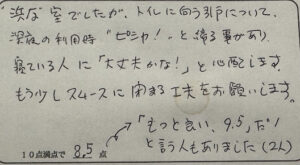 浜な室でしたが、トイレに向う引戸について、
深夜の利用時"ピシャ!"と鳴る事があり
寝ている人に「大丈夫かな!」と心配します。
もう少しスムースに閉まる工夫をお願いします。
10点満点で 8,5 点
「もっと良い、9.5」だゾ
と言う人もありました(2人)